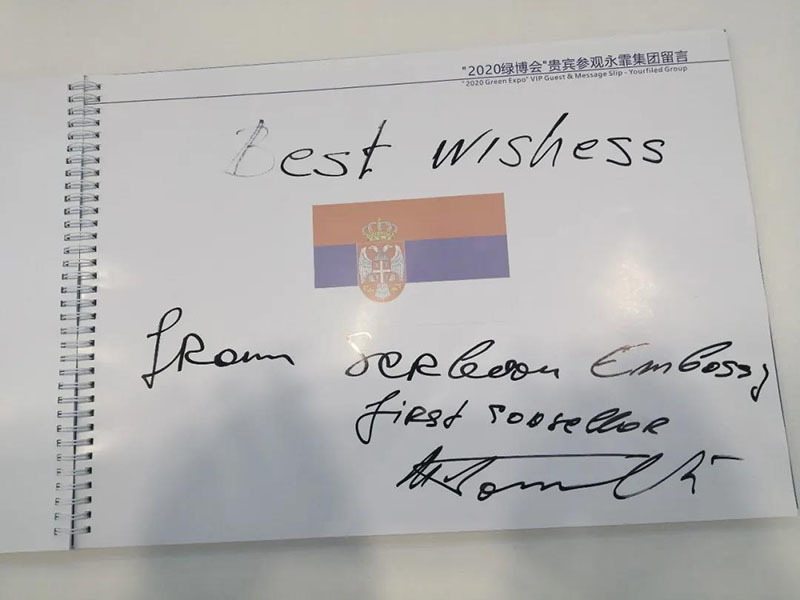 "2020绿博会"贵宾参观永霏集团留言
"2020 Green Expo" VIP Guest & Message Slip - Yourfiled Group
Best wishess
from Serbian Embassy
first